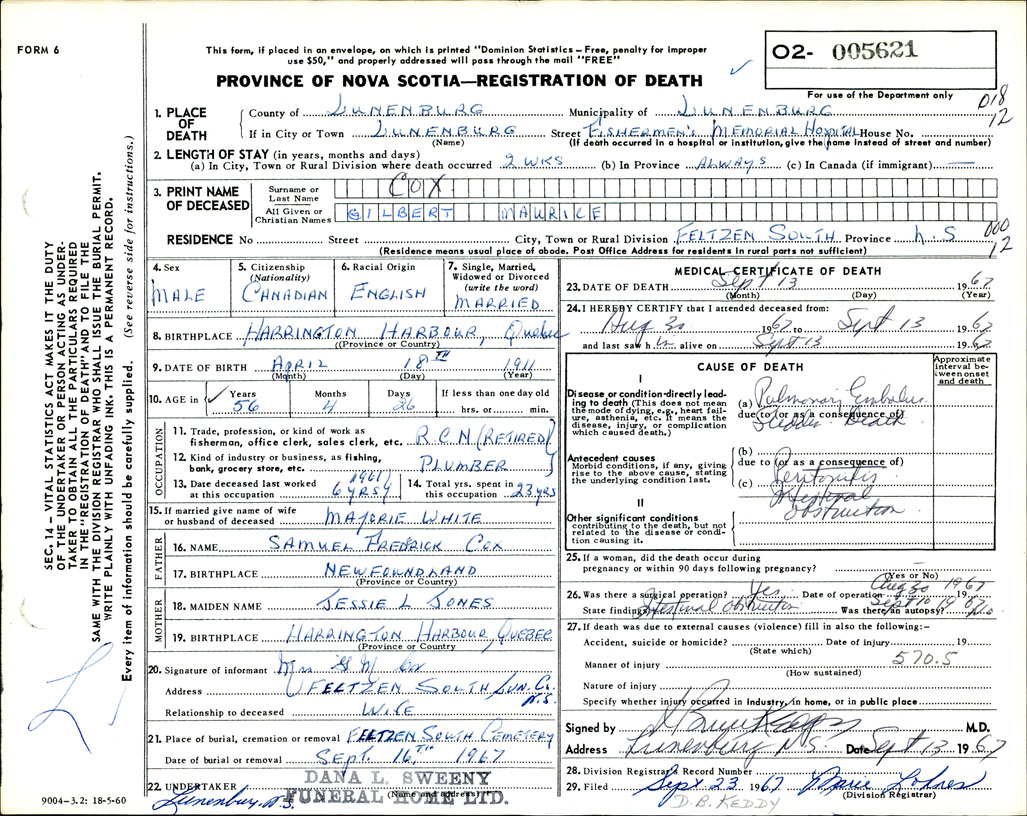 FORM 6
This form, if placed in an envelope, on which is printed "Dominion Statistics – Free, penalty for improper
use $50," and properly addressed will pass through the mail "FREE"
PROVINCE OF NOVA SCOTIA—REGISTRATION OF DEATH
O2- 005621
For use of the Department only
018
12
1. PLACE OF DEATH
County of LUNENBURG Municipality of LUNENBURG
If in City or Town LUNENBURG Street FISHERMEN'S MEMORIAL HOSPITAL House No.
(Name) (If death occurred in a hospital or institution, give the name instead of street and number)
2. LENGTH OF STAY (in years, months and days)
(a) In City, Town or Rural Division where death occurred 2 WKS (b) In Province ALWAYS (c) In Canada (if immigrant) —
3. PRINT NAME OF DECEASED
Surname or Last Name COX
All Given or Christian Names GILBERT MAURICE
RESIDENCE No Street City, Town or Rural Division FELTZEN SOUTH Province N.S
000
12
(Residence means usual place of abode. Post Office Address for residents in rural parts not sufficient)
4. Sex MALE
5. Citizenship (Nationality) CANADIAN
6. Racial Origin ENGLISH
7. Single, Married, Widowed or Divorced (write the word) MARRIED
8. BIRTHPLACE HARRINGTON HARBOUR, Quebec
(Province or Country)
9. DATE OF BIRTH APRIL 18TH 1911
(Month) (Day) (Year)
10. AGE in Years 56 Months 4 Days 26 If less than one day old hrs. or min.
OCCUPATION
11. Trade, profession, or kind of work as fisherman, office clerk, sales clerk, etc. R.C.N (RETIRED)
12. Kind of industry or business, as fishing, bank, grocery store, etc. PLUMBER
13. Date deceased last worked at this occupation 1961 6 YRS 14. Total yrs. spent in this occupation 23 YRS
15. If married give name of wife or husband of deceased MAJORIE WHITE
FATHER
16. NAME SAMUEL FREDRICK COX
17. BIRTHPLACE NEWFOUNDLAND
(Province or Country)
MOTHER
18. MAIDEN NAME JESSIE L JONES
19. BIRTHPLACE HARRINGTON HARBOUR, QUEBEC
(Province or Country)
20. Signature of informant Mrs G M Cox
Address FELTZEN SOUTH Lun. Co. N.S.
Relationship to deceased WIFE
21. Place of burial, cremation or removal FELTZEN SOUTH CEMETERY
Date of burial or removal SEPT. 16TH, 1967
22. UNDERTAKER DANA L. SWEENY
FUNERAL HOME LTD.
(Name and address)
Lunenburg, N.S.
9004-3.2: 18-5-60
MEDICAL CERTIFICATE OF DEATH
23. DATE OF DEATH Sept 13 1967
(Month) (Day) (Year)
24. I HEREBY CERTIFY that I attended deceased from:
Aug 30 1967 to Sept 13 1967
and last saw him alive on Sept 13 1967
CAUSE OF DEATH
Approximate interval between onset and death
I
Disease or condition directly leading to death (This does not mean the mode of dying, e.g., heart failure, asthenia, etc. It means the disease, injury, or complication which caused death.)
(a) Pulmonary Embolus
due to (or as a consequence of)
Sudden Death
Antecedent causes
Morbid conditions, if any, giving rise to the above cause, stating the underlying condition last.
(b)
due to (or as a consequence of)
(c) Peritonitis
Intestinal
Obstruction
II
Other significant conditions contributing to the death, but not related to the disease or condition causing it.
25. If a woman, did the death occur during
pregnancy or within 90 days following pregnancy?
(Yes or No)
26. Was there a surgical operation? Yes Date of operation Aug 30 1967
Sept 10 1967
State findings Intestinal Obstruction Was there an autopsy? No
27. If death was due to external causes (violence) fill in also the following:–
Accident, suicide or homicide? Date of injury 19
(State which)
Manner of injury 570.5
(How sustained)
Nature of injury
Specify whether injury occurred in Industry, in home, or in public place
Signed by M.D.
Address Lunenburg N.S. Date Sept 13 1967
28. Division Registrar's Record Number
29. Filed Sept 23 1967
(Division Registrar)
D.B. KEDDY
SEC. 14 – VITAL STATISTICS ACT MAKES IT THE DUTY
OF THE UNDERTAKER OR PERSON ACTING AS UNDER-
TAKER TO OBTAIN ALL THE PARTICULARS REQUIRED
IN THE "REGISTRATION OF DEATH" AND TO FILE THE
SAME WITH THE DIVISION REGISTRAR WHO SHALL ISSUE THE BURIAL PERMIT.
WRITE PLAINLY WITH UNFADING INK. THIS IS A PERMANENT RECORD.
Every item of information should be carefully supplied. (See reverse side for instructions.)